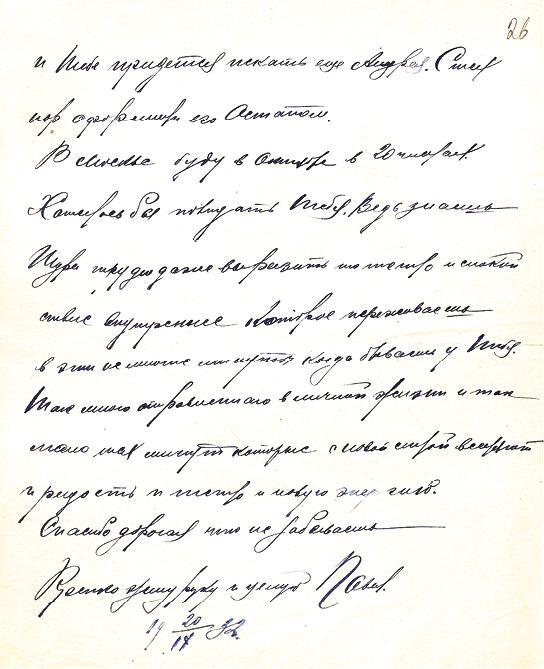 26
и Тебе придется искать еще Андрея. С тех
пор оформили его Остапом.
В Москве буду в Октябре в 20 числах.
Хотелось бы повидать Тебя. Ведь знаешь
Шура трудно даже выразить то тепло и спокой
ствие ощущение которое переживаешь
в эти немногие минуты когда бываешь у Тебя.
Так много отравленного в личной жизни и так
мало тех минут которые с новой силой вселяют
и радость и тепло и новую энергию.
Спасибо дорогая что не забываешь
Крепко жму руку и целую Павел.
19 20 32.